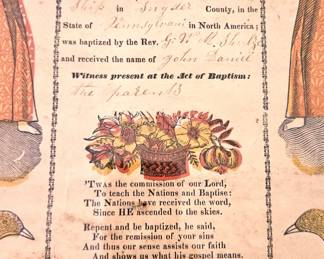 Ship in Snyder County, in the
State of Pennsylvani in North America;
was baptized by the Rev. G.
and received the name of John Daniel
Witness present at the Act of Baptism:
the parents
'Twas the commission of our Lord,
To teach the Nations and Baptise:
The Nations have received the word,
Since HE ascended to the skies.
Repent and be baptized, he said,
For the remission of your sins
And thus our sense assists our faith
And shows us what his gospel means.